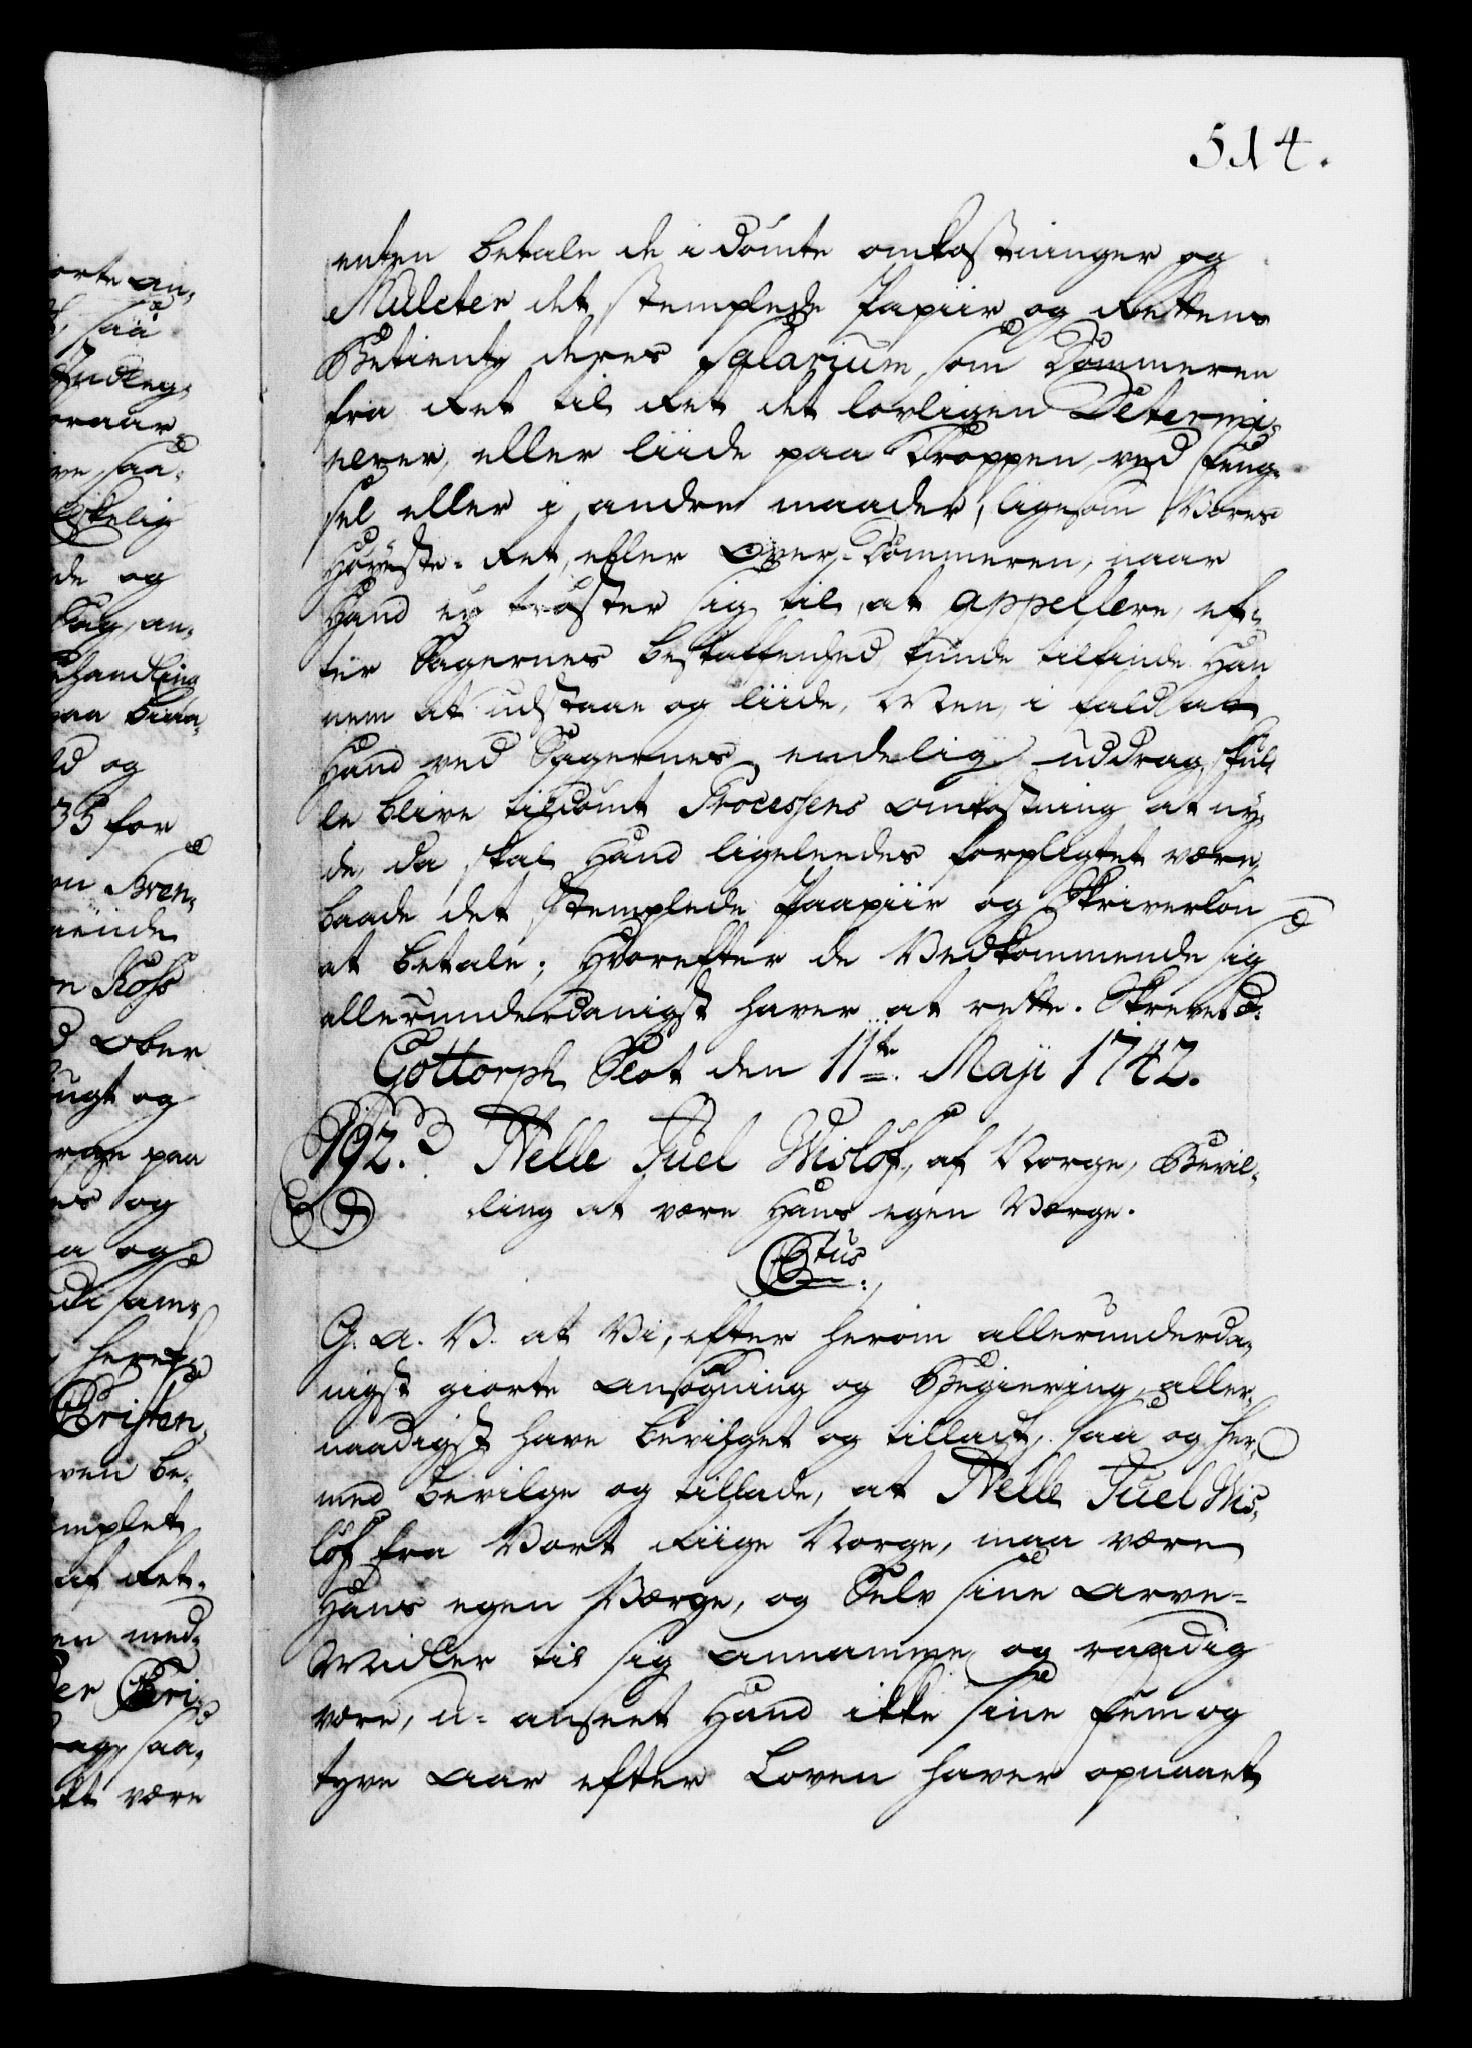 514.
enten betale de idømte omkostninger og
Mulcter det stemplede Papiir og Rettens
Betiente deres Salarium, som Dommeren
fra Ret til Ret det lovligen Determi-
nerer, eller liide paa Kroppen, ved Feng-
sel eller i andre maader, ligesom Vores
Høyeste-Ret, eller Over-Dommeren, naar
Hand ey trøster sig til, at appellere, ef-
ter Sagernes beskaffenhed kunde tilfinde Han-
nem at udstaae og liide, Men, i fald at
Hand ved Sagernes endelig uddrag, skul-
le blive tildømt Processens omkostning at ny-
de, da skal Hand ligeleedes forpligtet være,
baade det stemplede Paapiir og Skriverløn
at betale; Hvorefter de Vedkommende sig
allerunderdanigst haver at rette. Skrevet p.
Gottorph Slot den 11te. Maji 1742.
192. Nelle Juel Wisløf, af Norge, Bevil-
ling at være Hans egen Værge.
Gtus.
G. A. V. at Vi, efter herom allerunderda-
nigst giorte Ansøgning og Begiering, aller-
naadigst have bevilget og tilladt, saa og her-
med bevilge og tillade, at Nelle Juel Wis-
løf fra Vort Riige Norge, maa være
Hans egen Værge, og Selv sine Arve-
Midler til sig annamme og raadig
være, u-anseet Hand ikke sine Fem og
tyve Aar efter Loven haver opnaaet